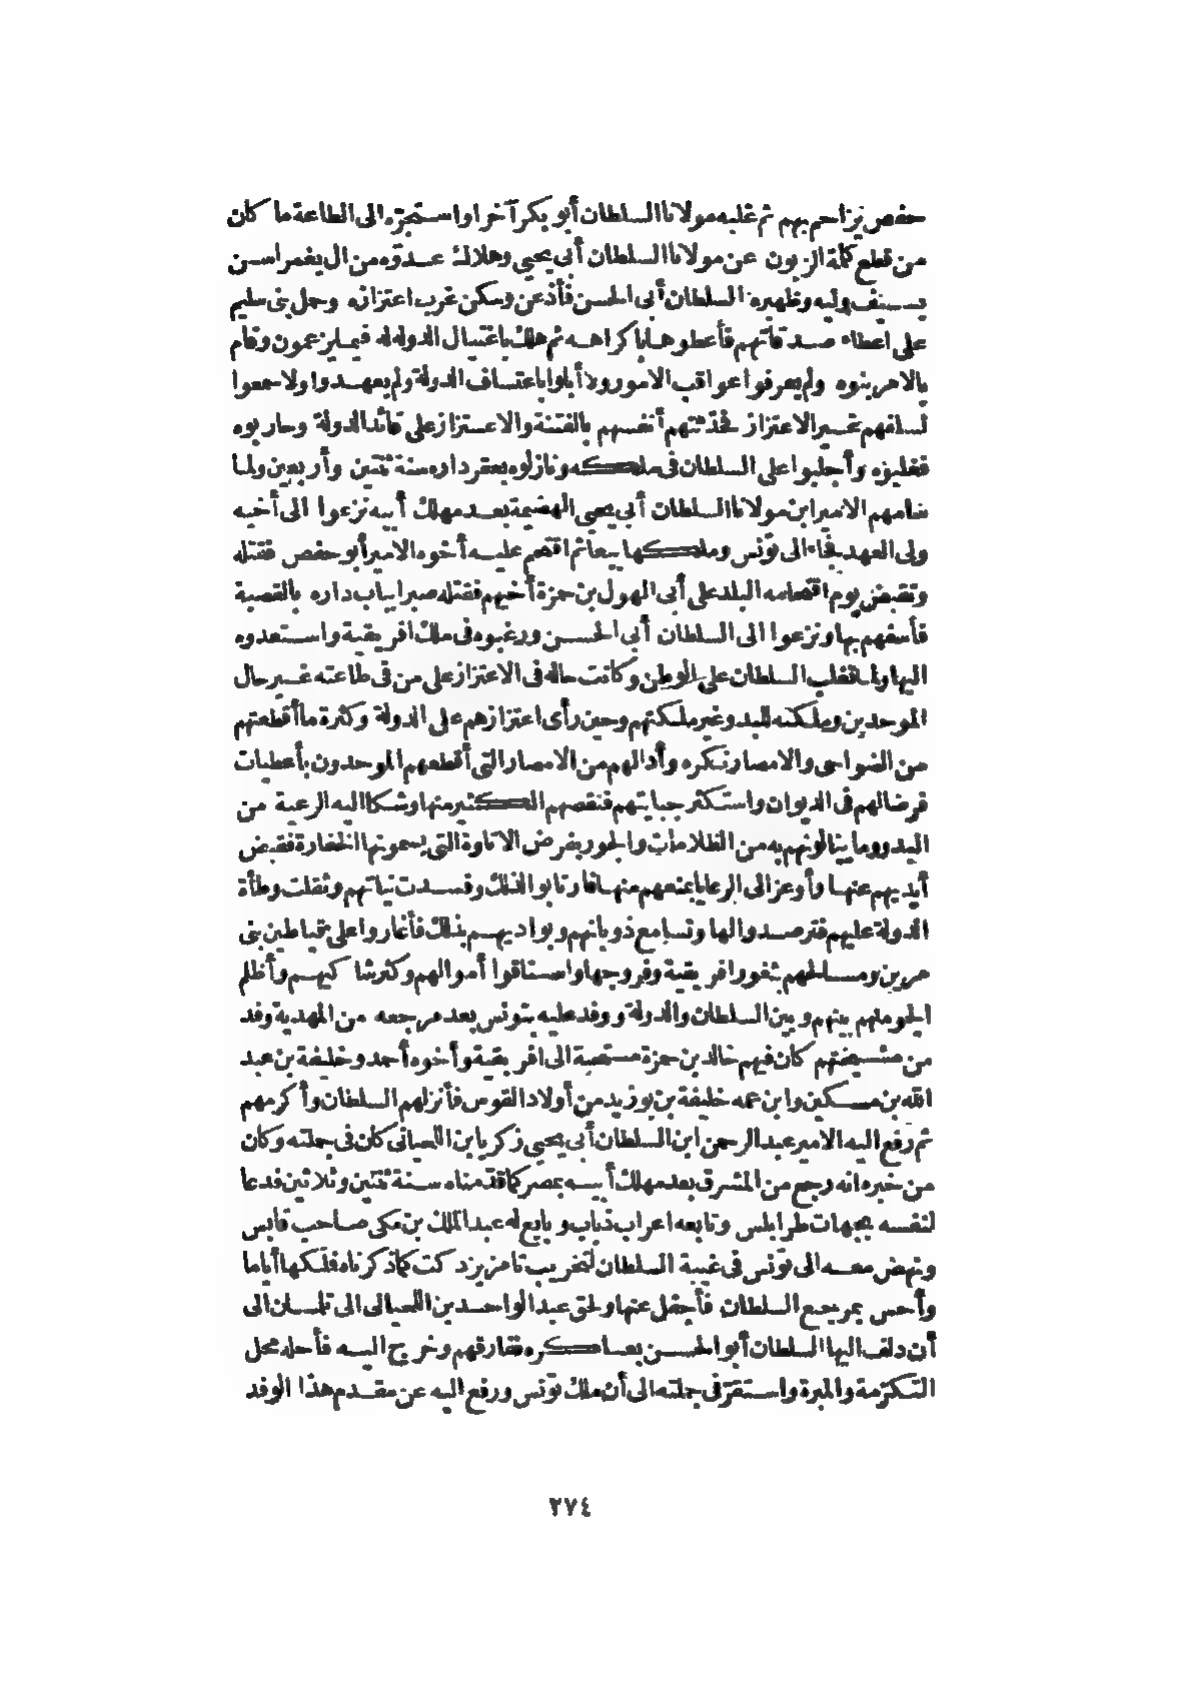 حفص يزاحم بهم ثم غلبه مولانا السلطان أبو بكر آخرا واستجره الى الطاعة ما كان
من قطع كلمة الزبون عن مولانا السلطان أبي يحيى وهلاك عدوه من ال يغمراسن
بسيف وليه وظهيره السلطان أبى الحسن فأذعن وسكن غرب اعتزازه وحمل بنى سليم
على اعطاء صدقاتهم فأعطوها باكراهه ثم هلك باغتيال الدولة له فيما يزعمون وقام
بالامر بنوه ولم يعرفوا عواقب الامور ولا أبلوا باعتساف الدولة ولم يعهدوا ولا سمعوا
لسلفهم غير الاعتزاز فحدثتهم أنفسهم بالفتنة والاعتزاز على قائد الدولة وحاربوه
فغلبوه وأجلبوا على السلطان فى ملكه ونازلوه بعقر داره سنة ثنتين وأربعين ولما
سامهم الامير ابن مولانا السلطان أبي يحيى الهضيمة بعد مهلك أبيه نزعوا الى أخيه
ولى العهد فجاء الى تونس وملكها سبعا ثم اقتحم عليه أخوه الامير أبو حفص فقتله
وتقبض يوم اقتحامه البلد على أبى الهول بن حمزة أخيهم فقتله صبرا بباب داره بالقصبة
فأسفهم بها ونزعوا الى السلطان أبى الحسن ورغبوه فى ملك افريقية واستعدوه
اليها ولما تغلب السلطان على الوطن وكانت حاله فى الاعتزاز على من فى طاعته غير حال
الموحدين وملكته للبدو غير ملكتهم وحين رأى اعتزازهم على الدولة وكثرة ما أقطعتهم
من الضواحى والامصار نكره وأدالهم من الامصار التى أقطعهم الموحدون بأعطيات
فرضها لهم فى الديوان واستكثر جبايتهم فنقصهم الكثير منها وشكا اليه الرعية من
البدو وما ينالونهم به من الظلامات والجور بفرض الاتاوة التى يسمونها الخفارة فقبض
أيديهم عنها وأوعز الى الرعايا بمنعهم منها فارتابوا لذلك وفسدت نياتهم وثقلت وطأة
الدولة عليهم فترصدوا لها وتسامع ذؤبانهم وبواديهم بذلك فأغاروا على قياطين بنى
مرين ومسالحهم بثغور افريقية وفروجها واستاقوا أموالهم وكثر شاكيهم وأظلم
الجو منهم بينهم وبين السلطان والدولة ووفد عليه بتونس بعد مرجعه من المهدية وفد
من مشيختهم كان فيهم خالد بن حمزة مستحثه الى افريقية وأخوه أحمد وخليفة بن عبد
الله بن مسكين وابن عمه خليفة بن بوزيد من أولاد القوس فأنزلهم السلطان وأكرمهم
ثم رفع اليه الامير عبد الرحمن ابن السلطان أبي يحيى زكريا ابن اللحيانى كان فى جملته وكان
من خبره انه رجع من المشرق بعد مهلك أبيه بمصر كما قدمناه سنة ثنتين وثلاثين فدعا
لنفسه بجهات طرابلس وتابعه اعراب ذباب وبايع له عبد الملك بن مكى صاحب قابس
ونهض معه الى تونس فى غيبة السلطان لتخريب تامزيزدكت كما ذكرناه فملكها أياما
وأحس بمرجع السلطان فأجفل عنها ولحق عبد الواحد بن اللحيانى الى تلمسان الى
أن دلف اليها السلطان أبو الحسن بعساكره ففارقهم وخرج اليه فأحله محل
التكرمة والمبرة واستقر فى جملته الى أن ملك تونس ورفع اليه عن مقدم هذا الوفد
٢٧٤